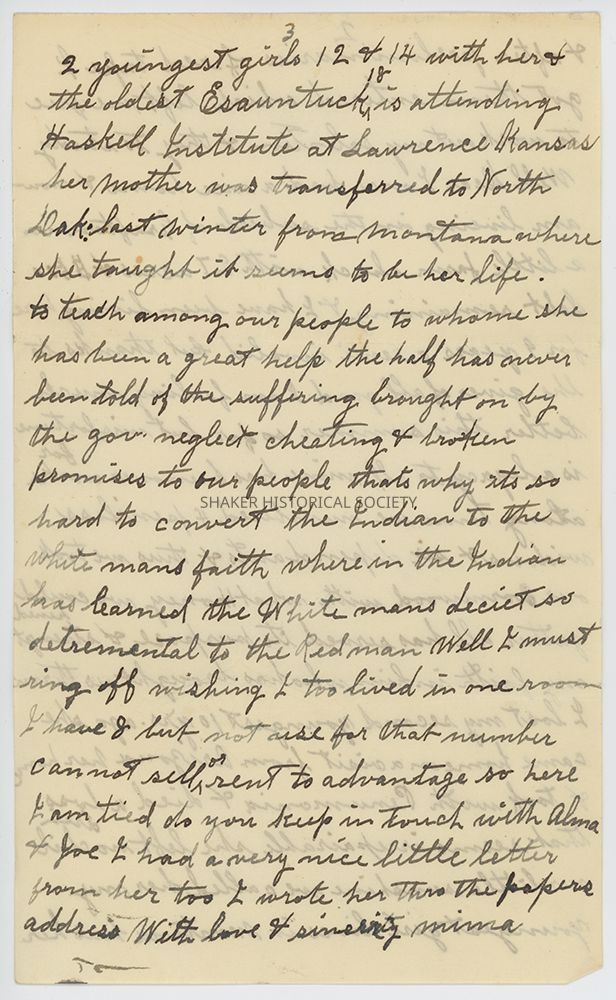 3
2 youngest girls 12 & 14 with her &
the oldest Esauntuck, 18 is attending
Haskell Institute at Lawrence Kansas
her mother was transferred to North
Dak: last winter from Montana where
she taught it seems to be her life.
to teach among our people to whome she
has been a great help the half has never
been told of the suffering brought on by
the gov. neglect cheating & broken
promises to our people thats why its so
SHAKER HISTORICAL SOCIETY
hard to convert the Indian to the
white mans faith where in the Indian
has learned the White mans deciet so
detremental to the Redman Well I must
ring off wishing I too lived in one room
I have 8 but not use for that number
cannot sell or rent to advantage so here
I am tied do you keep in touch with Alma
& Joe I had a very nice little letter
from her too I wrote her thro the papers
address With love & sincerity mima